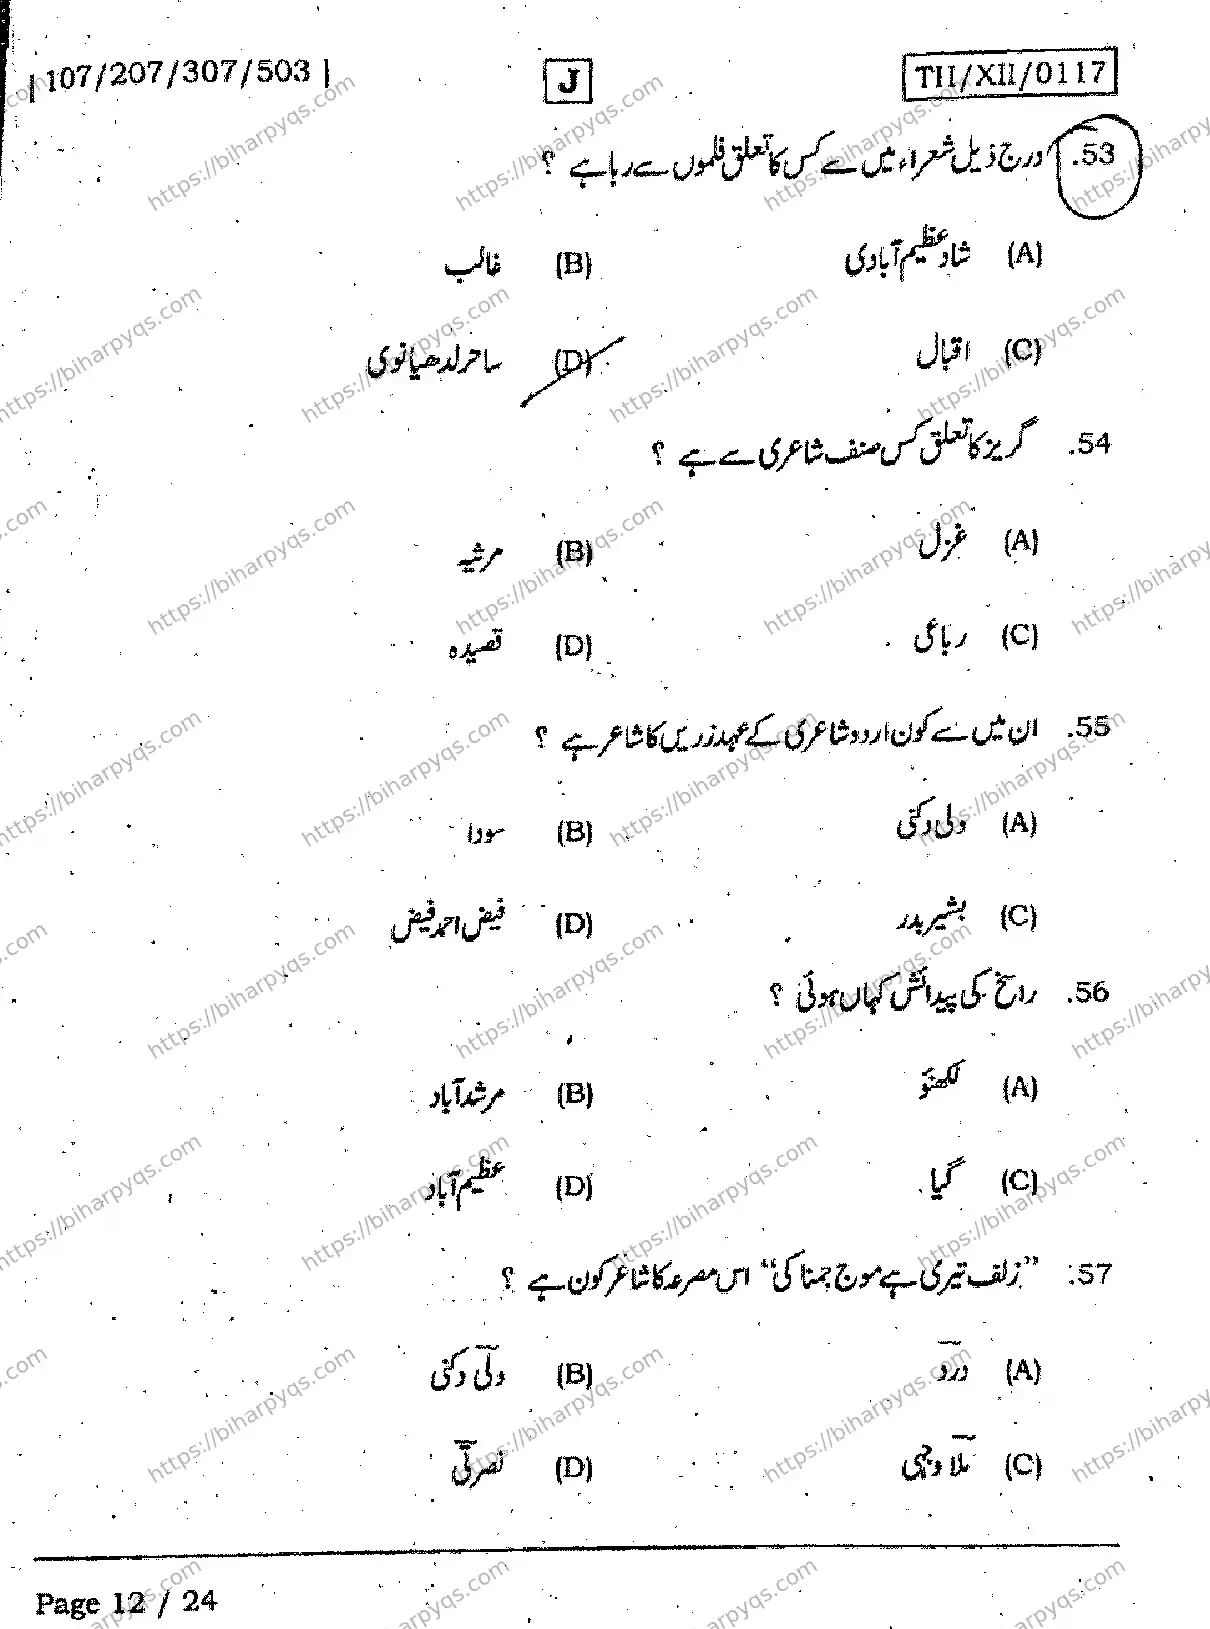 107/207/307/503
J
TII/XII/0117
53. درج ذیل شعراء میں سے کس کا تعلق فلموں سے رہا ہے ؟
(A) شاد عظیم آبادی (B) غالب
(C) اقبال (D) ساحر لدھیانوی
54. گریز کا تعلق کس صنف شاعری سے ہے ؟
(A) غزل (B) مرثیہ
(C) رباعی (D) قصیدہ
55. ان میں سے کون اردو شاعری کے عہد زریں کا شاعر ہے ؟
(A) ولی دکنی (B) سودا
(C) بشیر بدر (D) فیض احمد فیض
56. راسخ کی پیدائش کہاں ہوئی ؟
(A) لکھنؤ (B) مرشد آباد
(C) گیا (D) عظیم آباد
57. ”زلف تیری ہے موج جمنا کی“ اس مصرعہ کا شاعر کون ہے ؟
(A) درد (B) ولی دکنی
(C) ملا وجہی (D) نصرتی
Page 12 / 24
https://biharpyqs.com